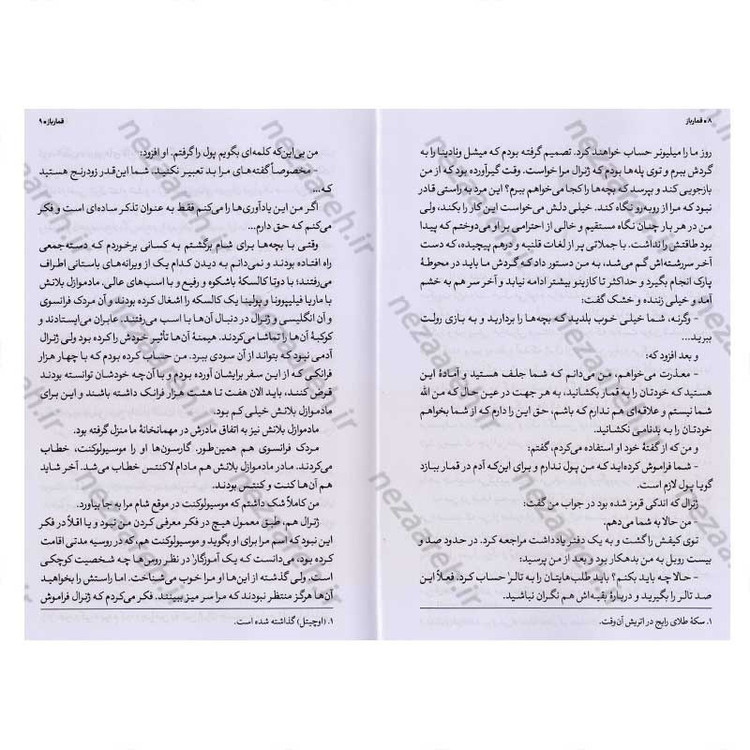 ۸ • قمارباز
روز ما را میلیونر حساب خواهند کرد. تصمیم گرفته بودم که میشل ونادینا را به
گردش ببرم و توی پله‌ها بودم که ژنرال مرا خواست. وقت گیرآورده بود که از من
بازجویی کند و بپرسد که بچه‌ها را کجا می‌خواهم ببرم؟ این مرد به راستی قادر
نبود که مرا از روبه‌رو نگاه کند. خیلی دلش می‌خواست این کار را بکند، ولی
من در هر بار چنان نگاه مستقیم و خالی از احترامی بر او می‌دوختم که پیدا
بود طاقتش را نداشت. با جملاتی پر از لغات قلنبه و درهم پیچیده، که دست
آخر سررشته‌اش گم می‌شد، به من دستور داد که گردش ما باید در محوطهٔ
پارک انجام بگیرد و حداکثر تا کازینو بیشتر ادامه نیابد و آخر سر هم به خشم
آمد و خیلی زننده و خشک گفت:
- وگرنه، شما خیلی خوب بلدید که بچه‌ها را بردارید و به بازی رولت
ببرید...
و بعد افزود که:
- معذرت می‌خواهم، من می‌دانم که شما جلف هستید و آمادهٔ این
هستید که خودتان را به قمار بکشانید، به هر جهت در عین حال که من الله
شما نیستم و علاقه‌ای هم ندارم که باشم، حق این را دارم که از شما بخواهم
خودتان را به بدنامی نکشانید.
و من که از گفتهٔ خود او استفاده می‌کردم، گفتم:
- شما فراموش کرده‌اید که من پول ندارم و برای این‌که آدم در قمار ببازد
گویا پول لازم است.
ژنرال که اندکی قرمز شده بود در جواب من گفت:
- من حالا به شما می‌دهم.
توی کیفش را گشت و به یک دفتر یادداشت مراجعه کرد. در حدود صد و
بیست روبل به من بدهکار بود و بعد از من پرسید:
- حالا چه باید بکنم؟ باید طلب‌هایتان را به تالر۱ حساب کرد. فعلاً این
صد تالر را بگیرید و دربارهٔ بقیه‌اش هم نگران نباشید.
۱. سکهٔ طلای رایج در اتریش آن وقت.
قمارباز • ۹
من بی این‌که کلمه‌ای بگویم پول را گرفتم. او افزود:
- مخصوصاً گفته‌های مرا بد تعبیر نکنید. شما این‌قدر زودرنج هستید
که...
اگر من این یادآوری‌ها را می‌کنم فقط به عنوان تذکر ساده‌ای است و فکر
می‌کنم که حق دارم...
وقتی با بچه‌ها برای شام برگشتم به کسانی برخوردم که دسته‌جمعی
راه افتاده بودند و نمی‌دانم به دیدن کدام یک از ویرانه‌های باستانی اطراف
می‌رفتند؛ با دوتا کالسکهٔ باشکوه و رفیع و با اسب‌های عالی. مادموازل بلانش
با ماریا فیلیپوونا و پولینا یک کالسکه را اشغال کرده بودند و آن مردک فرانسوی
و آن انگلیسی و ژنرال در دنبال آن‌ها با اسب می‌رفتند. عابران می‌ایستادند و
کوکبهٔ آن‌ها را تماشا می‌کردند. هیمنهٔ آن‌ها تأثیر خودش را کرده بود ولی ژنرال
آدمی نبود که بتواند از آن سودی ببرد. من حساب کرده بودم که با چهار هزار
فرانکی که از این سفر برایشان آورده بودم و با آن‌چه خودشان توانسته بودند
قرض کنند، باید الان هفت تا هشت هزار فرانک داشته باشند و این برای
مادموازل بلانش خیلی کم بود.
مادموازل بلانش نیز به اتفاق مادرش در مهمانخانهٔ ما منزل گرفته بود.
مردک فرانسوی هم همین‌طور. گارسون‌ها او را موسیولوکنت، خطاب
می‌کردند. مادر مادموازل بلانش هم مادام لاکنتس خطاب می‌شد. آخر شاید
هم آن‌ها کنت و کنتس بودند.
من کاملاً شک داشتم که موسیولوکنت در موقع شام مرا به جا بیاورد.
ژنرال هم، طبق معمول هیچ در فکر معرفی کردن من نبود و یا اقلاً در فکر
این نبود که اسم مرا برای او بگوید و موسیولوکنت هم، که در روسیه مدتی اقامت
کرده بود، می‌دانست که یک آموزگار۱ در نظر روس‌ها چه شخصیت کوچکی
است. ولی گذشته از این‌ها او مرا خوب می‌شناخت. اما راستش را بخواهید
آن‌ها هرگز منتظر نبودند که مرا سر میز ببینند. فکر می‌کردم که ژنرال فراموش
۱. (اوچیتل) گذاشته شده است.
nezaareh.ir